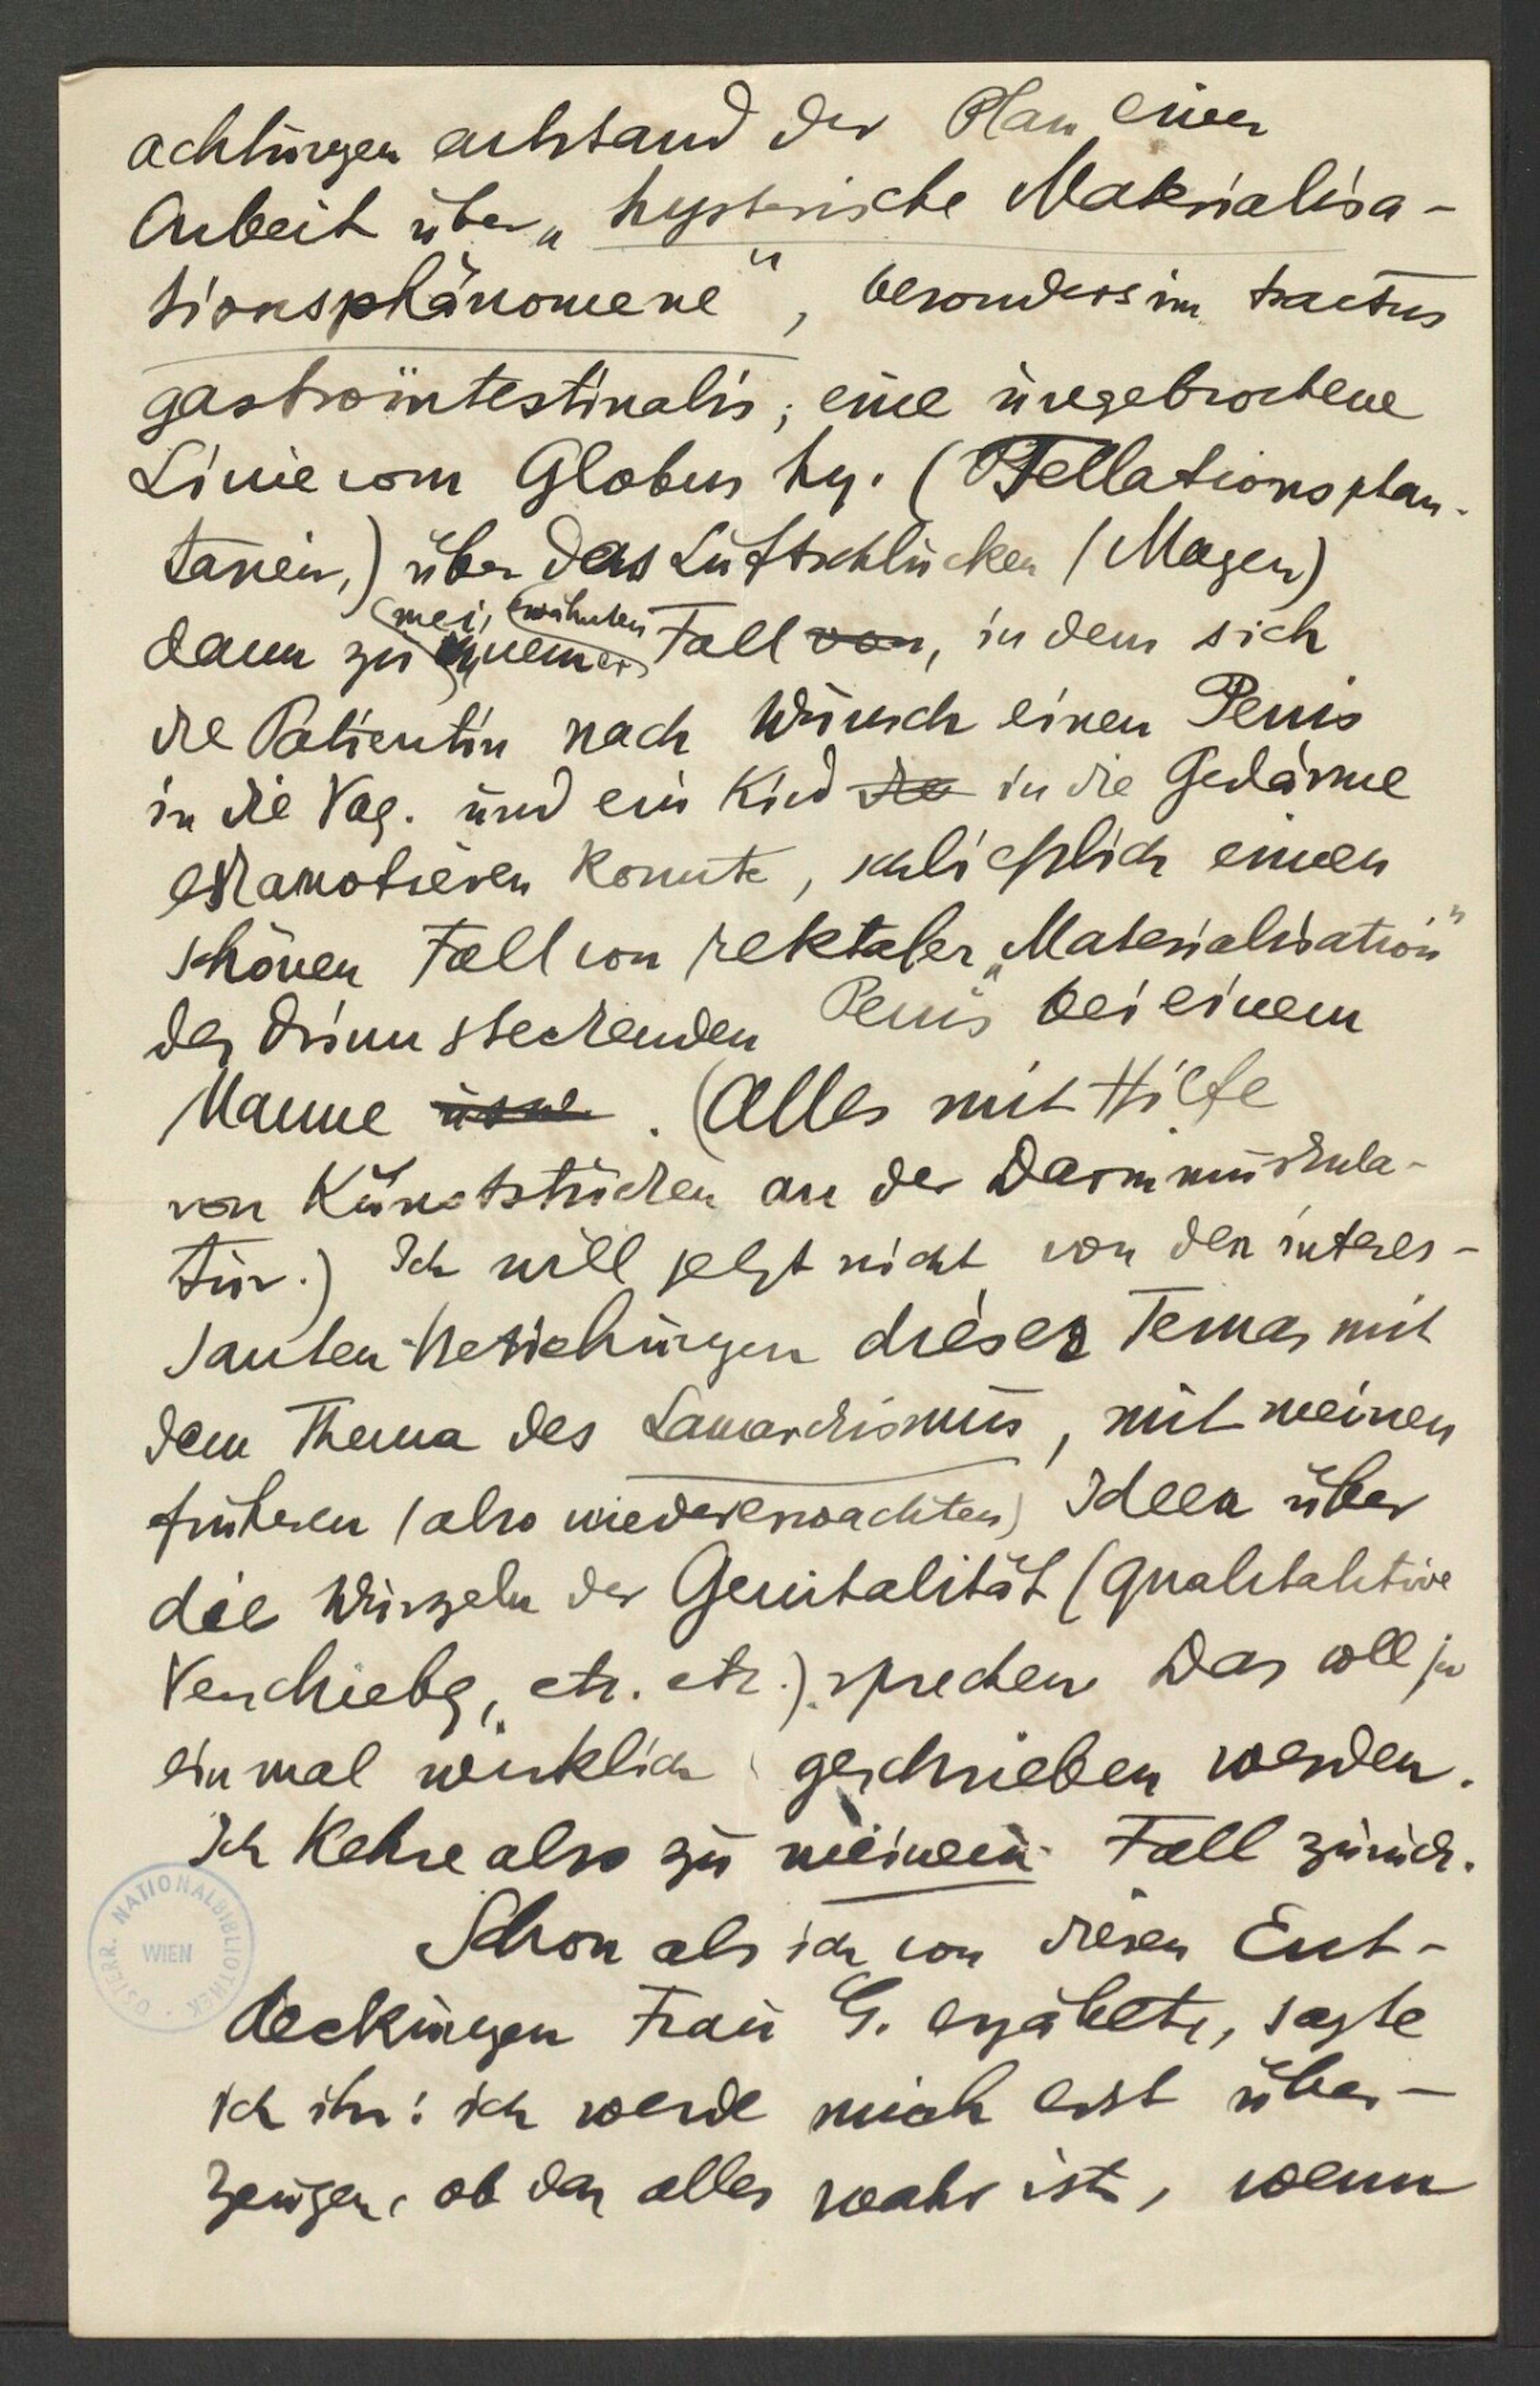 achtungen entstand der Plan einer
Arbeit über „hysterische Materialisa-
tionsphänomene", besonders im tractus
gastrointestinalis; eine ungebrochene
Linie vom Globus hy. (Fellationsphan-
tasien,) über das Luftschlucken (Magen)
dann zu meinem erwähnten Fall von, in dem sich
die Patientin nach Wunsch einen Penis
in die Vag. und ein Kind die in die Gedärme
eskamotieren konnte, schließlich einen
schönen Fall von rektaler „Materialisation"
des drinn steckenden Penis bei einem
Manne usw. (Alles mit Hilfe
von Kunststücken an der Darmmuskula-
tur.) Ich will jetzt nicht von den interes-
santen Beziehungen dieses Temas mit
dem Thema des Lamarckismus, mit meinen
früheren (also wiedererwachten) Ideen über
die Wurzeln der Genitalität (qualitative
Verschiebg, etc. etc.) sprechen Das soll ja
einmal wirklich geschrieben werden.
Ich kehre also zu meinem Fall zurück.
Schon als ich von diesen Ent-
deckungen Frau G. erzählte, sagte
ich ihr: ich werde mich erst über-
zeugen, ob das alles wahr ist, wenn
ÖSTERR. NATIONALBIBLIOTHEK WIEN